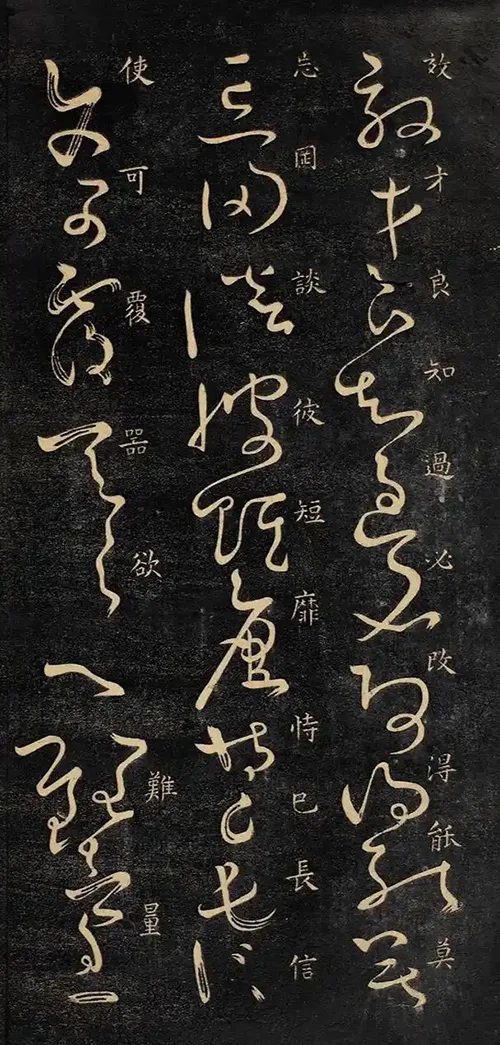 效才良知過必改得能莫
忘罔談彼短靡恃己長信
使可覆器欲難量